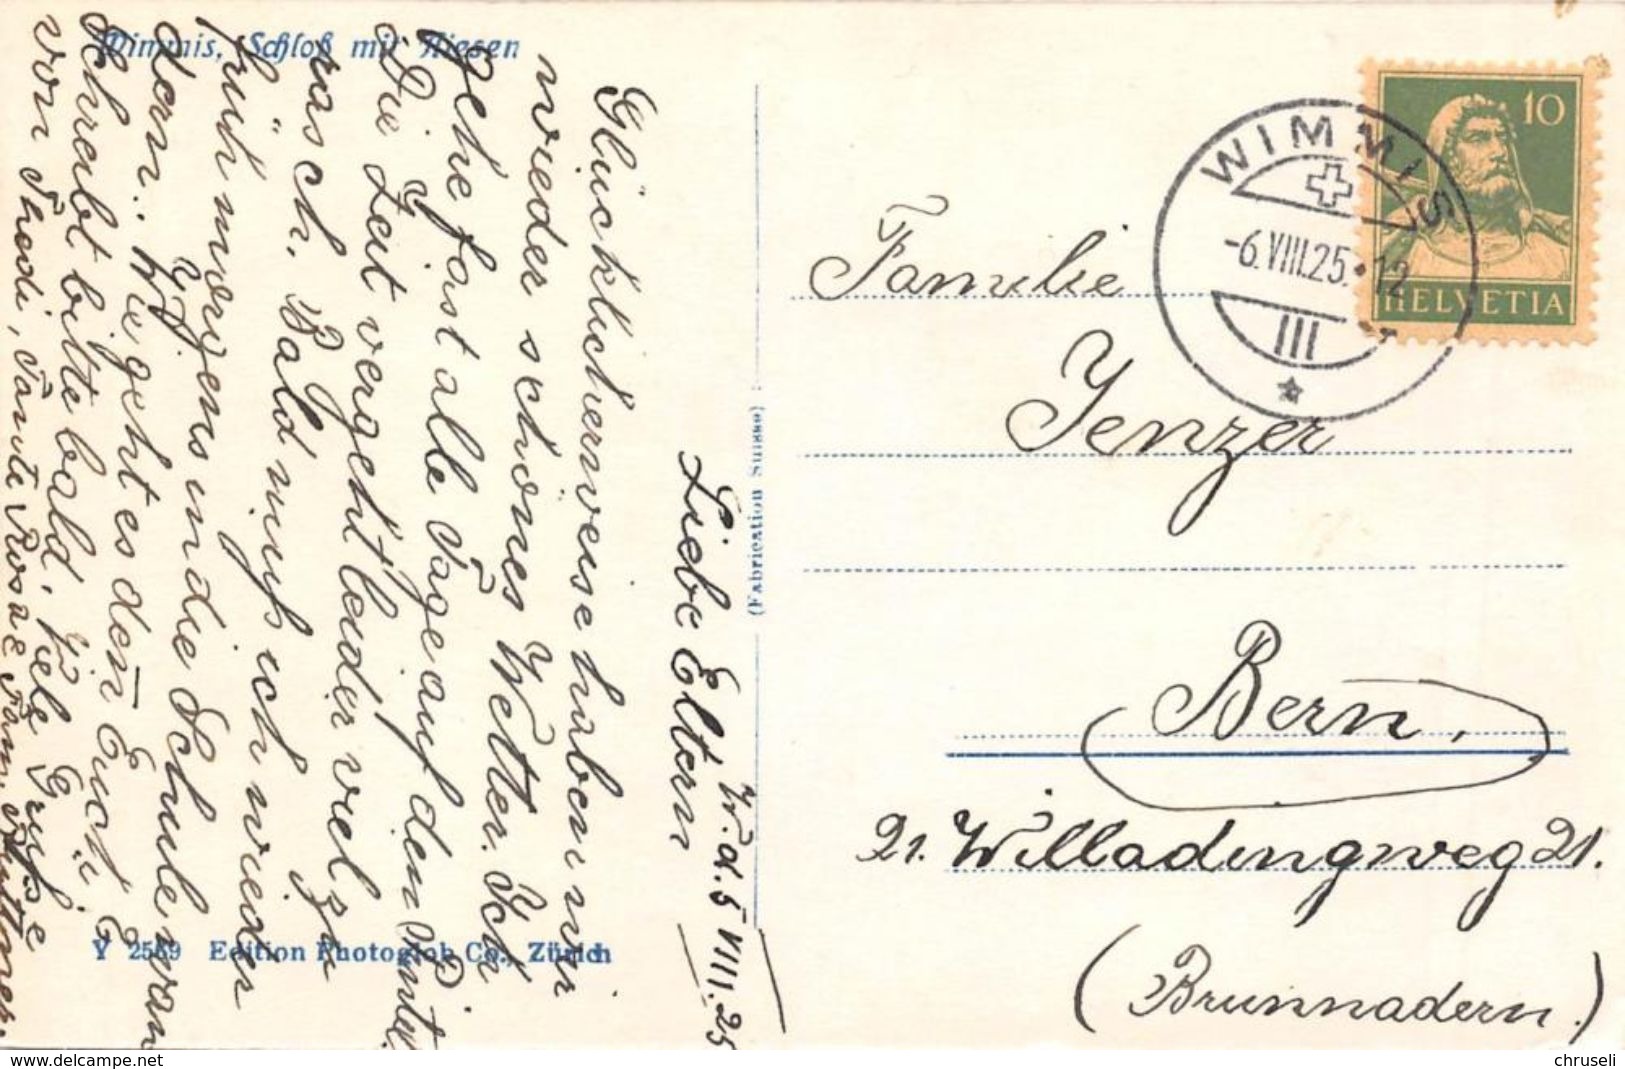 Wimmis, Schloß mit Niesen
W. d. 5 VIII. 25
Liebe Eltern
Glücklicherweise haben wir
wieder schönes Wetter. Ich
gehe fast alle Tage auf den
Die Zeit vergeht leider viel zu
rasch. Bald muss ich wieder
früh morgens in die Schule wan
dern.. Wie geht es den̄ Euch?
Schreibt bitte bald. Viele Grüsse
von Thedi, Tante Rosa & Fam.
V 2569 Edition Photoglob Co., Zürich
(Fabrication Suisse)
10
HELVETIA
WIMMIS
-6.VIII.25.-12
III
Familie
Jenzer
Bern,
21. Willadingweg 21.
(Brunnadern.)
www.delcampe.net
chruseli